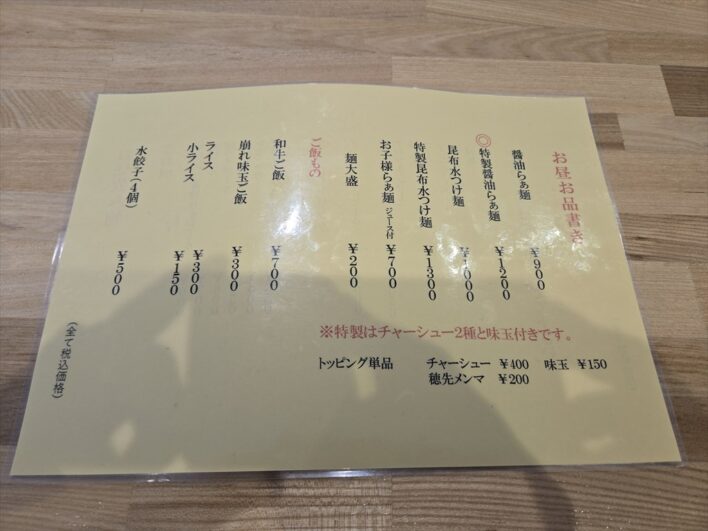 お昼お品書き
醤油らぁ麺 ¥900
◎特製醤油らぁ麺 ¥1200
昆布水つけ麺 ¥1000
特製昆布水つけ麺 ¥1300
お子様らぁ麺 ジュース付 ¥700
麺大盛 ¥200
ご飯もの
和牛ご飯 ¥700
崩れ味玉ご飯 ¥300
ライス ¥300
小ライス ¥150
水餃子(4個) ¥500
※特製はチャーシュー2種と味玉付きです。
トッピング単品 チャーシュー ¥400 味玉 ¥150
穂先メンマ ¥200
(全て税込価格)